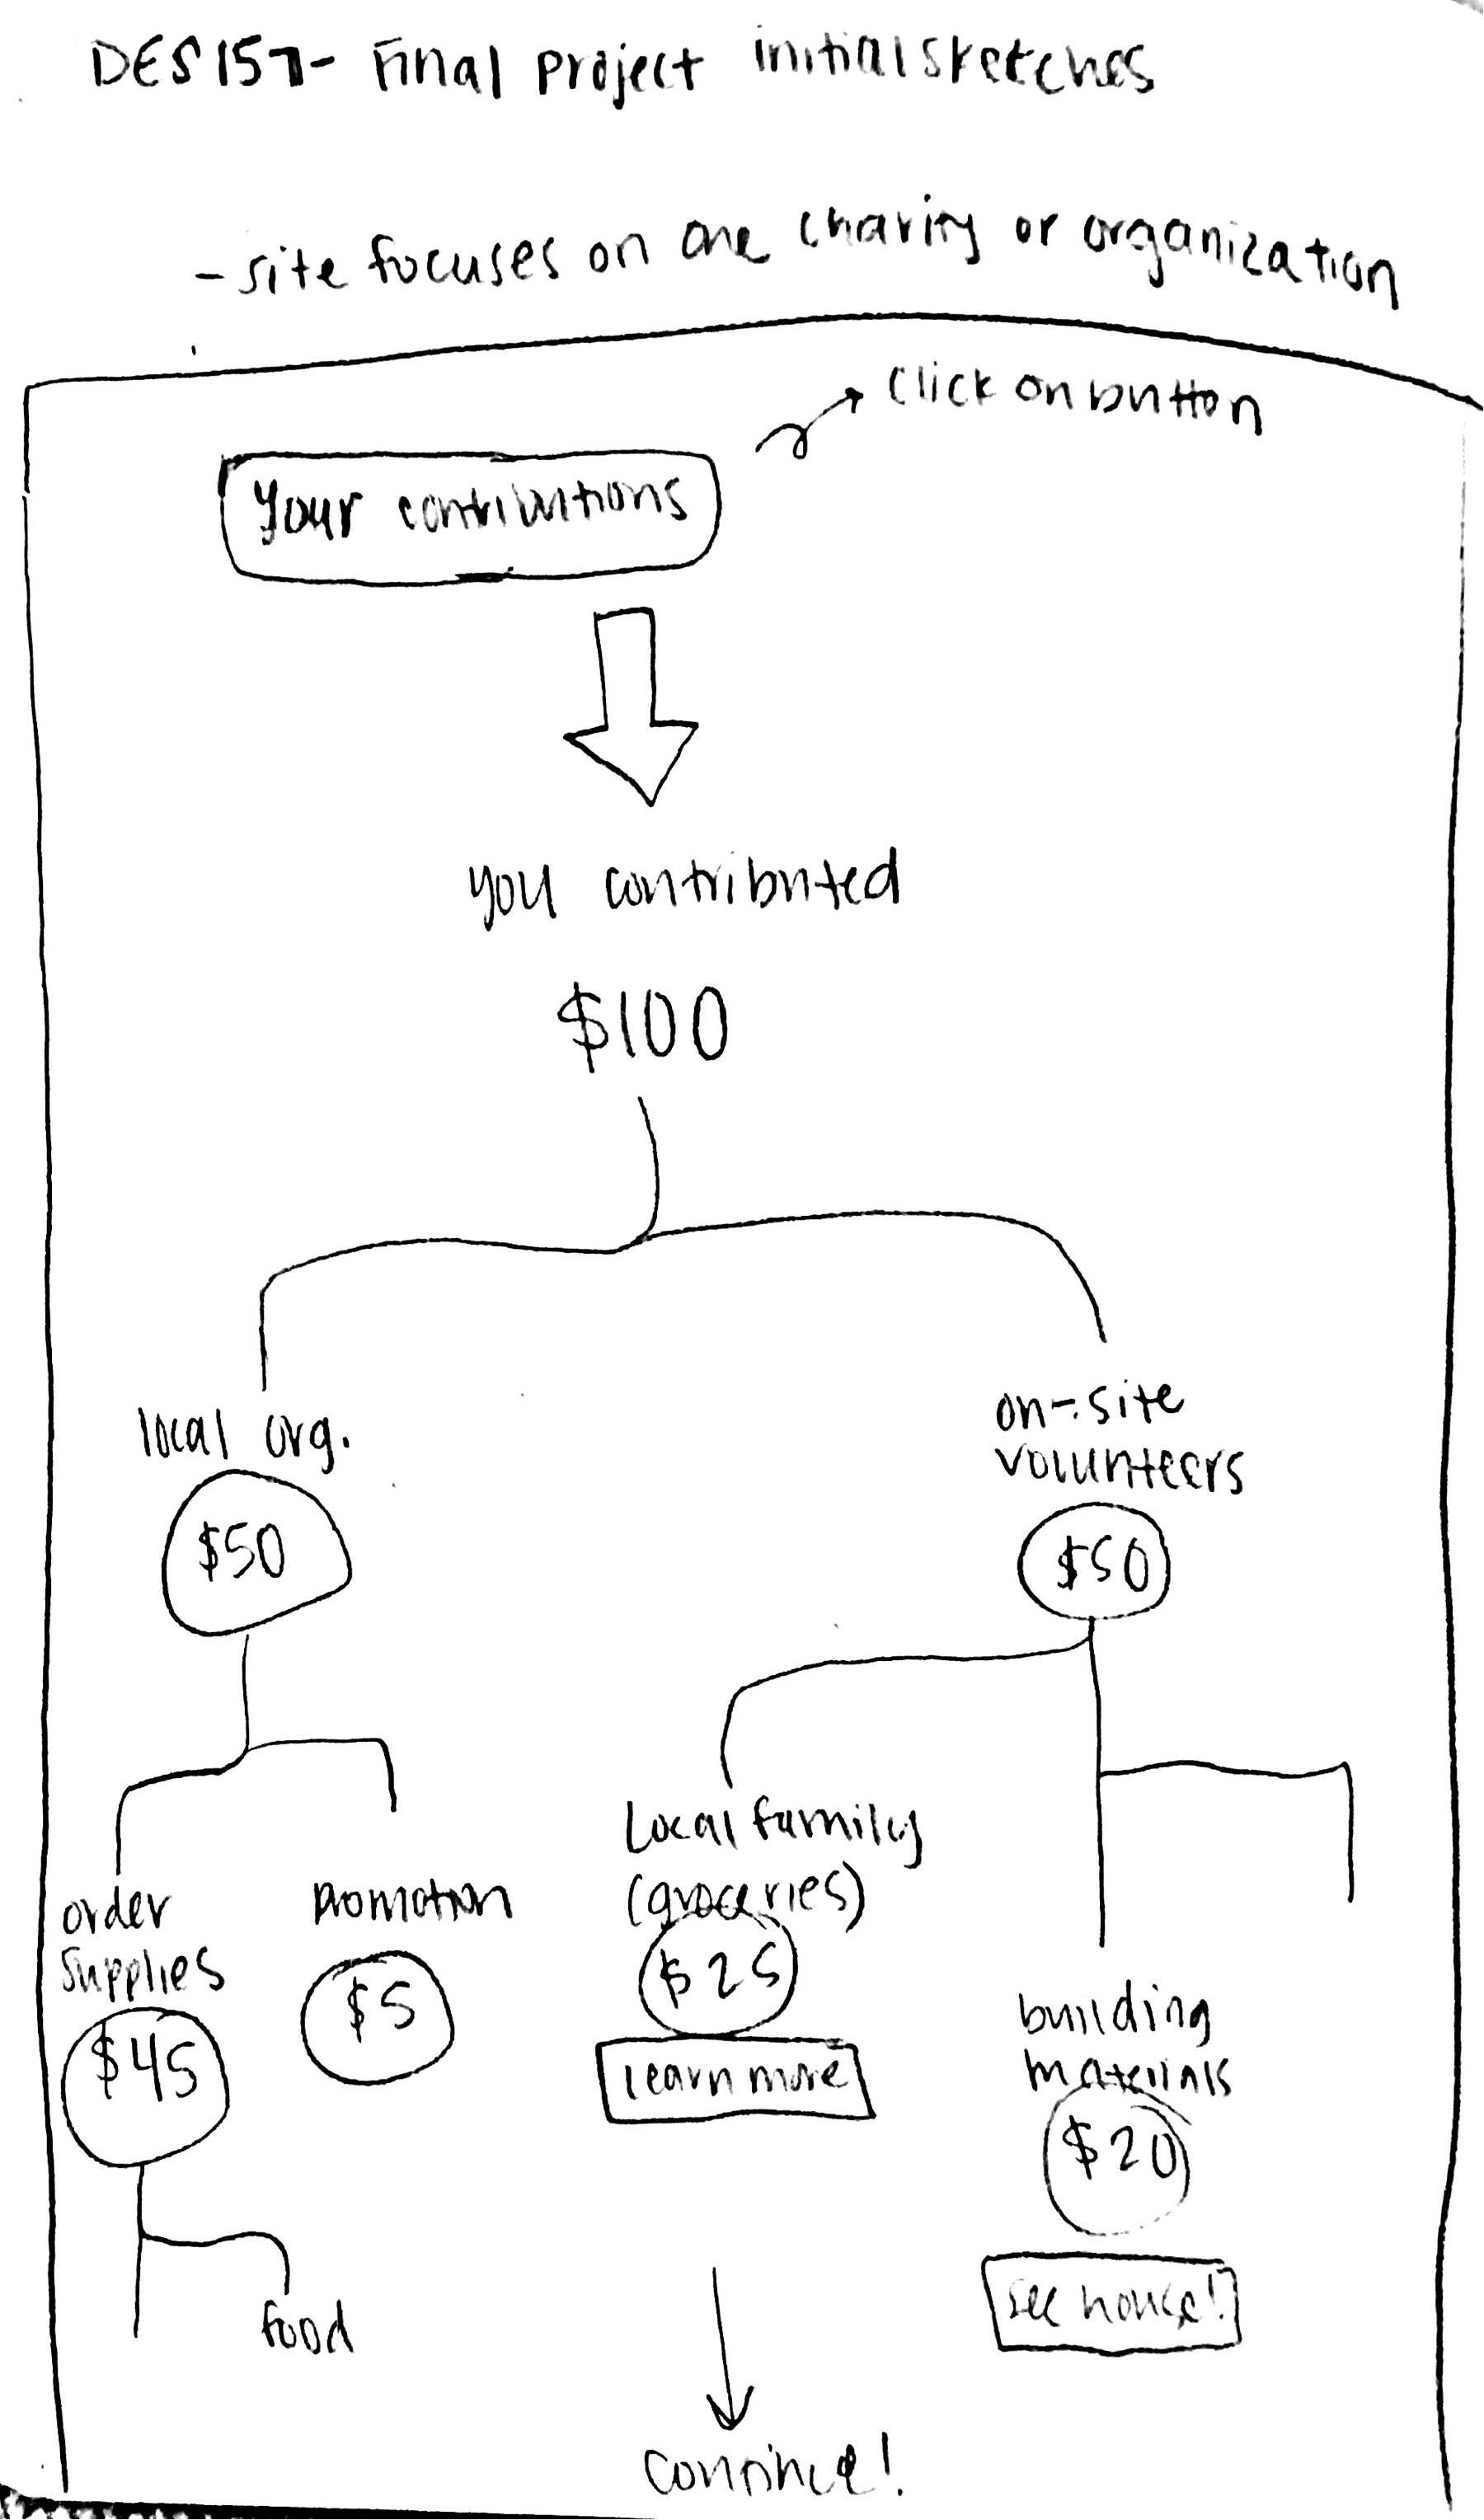 DES 157- Final project initial sketches
- site focuses on one charity or organization
click on button
Your contributions
you contributed
$100
local org.
$50
on-site
volunteers
$50
order
supplies
$45
promotion
$5
Local family
(groceries)
$25
learn more
building
materials
$20
see house!
food
continue!